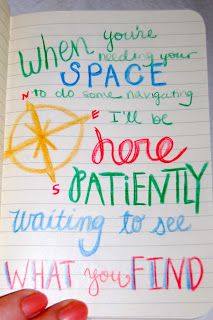 when you're
needing your
SPACE
to do some navigating
N
I'll be
E
here
S
PATIENTLY
waiting to see
WHAT you FIND